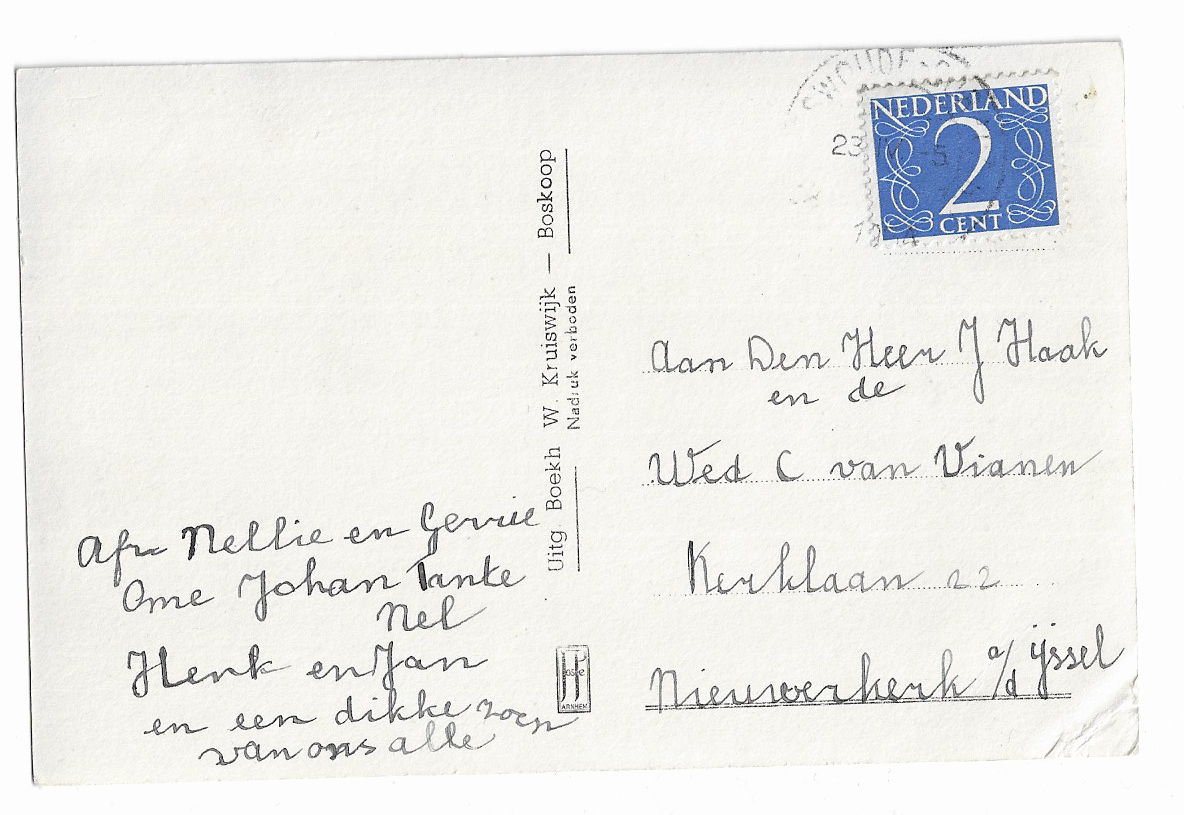 Afz Nellie en Gerrie
Ome Johan Tante
Nel
Henk en Jan
en een dikke zoen
van ons alle
Uitg Boekh W. Kruiswijk — Boskoop
Nadruk verboden
ARNHEM
NEDERLAND
2
CENT
23 IV -5
Aan Den Heer J Haak
en de
Wed C van Vianen
Kerklaan 22
Nieuwerkerk a/d ijssel